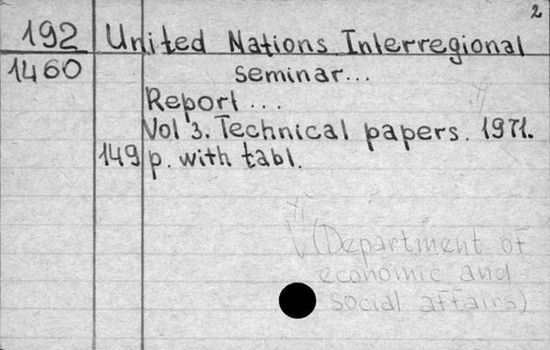 2
192 United Nations Interregional
1460 seminar...
Report...
Vol 3. Technical papers. 1971.
149 p. with tabl.
(Department of
economic and
social affairs)